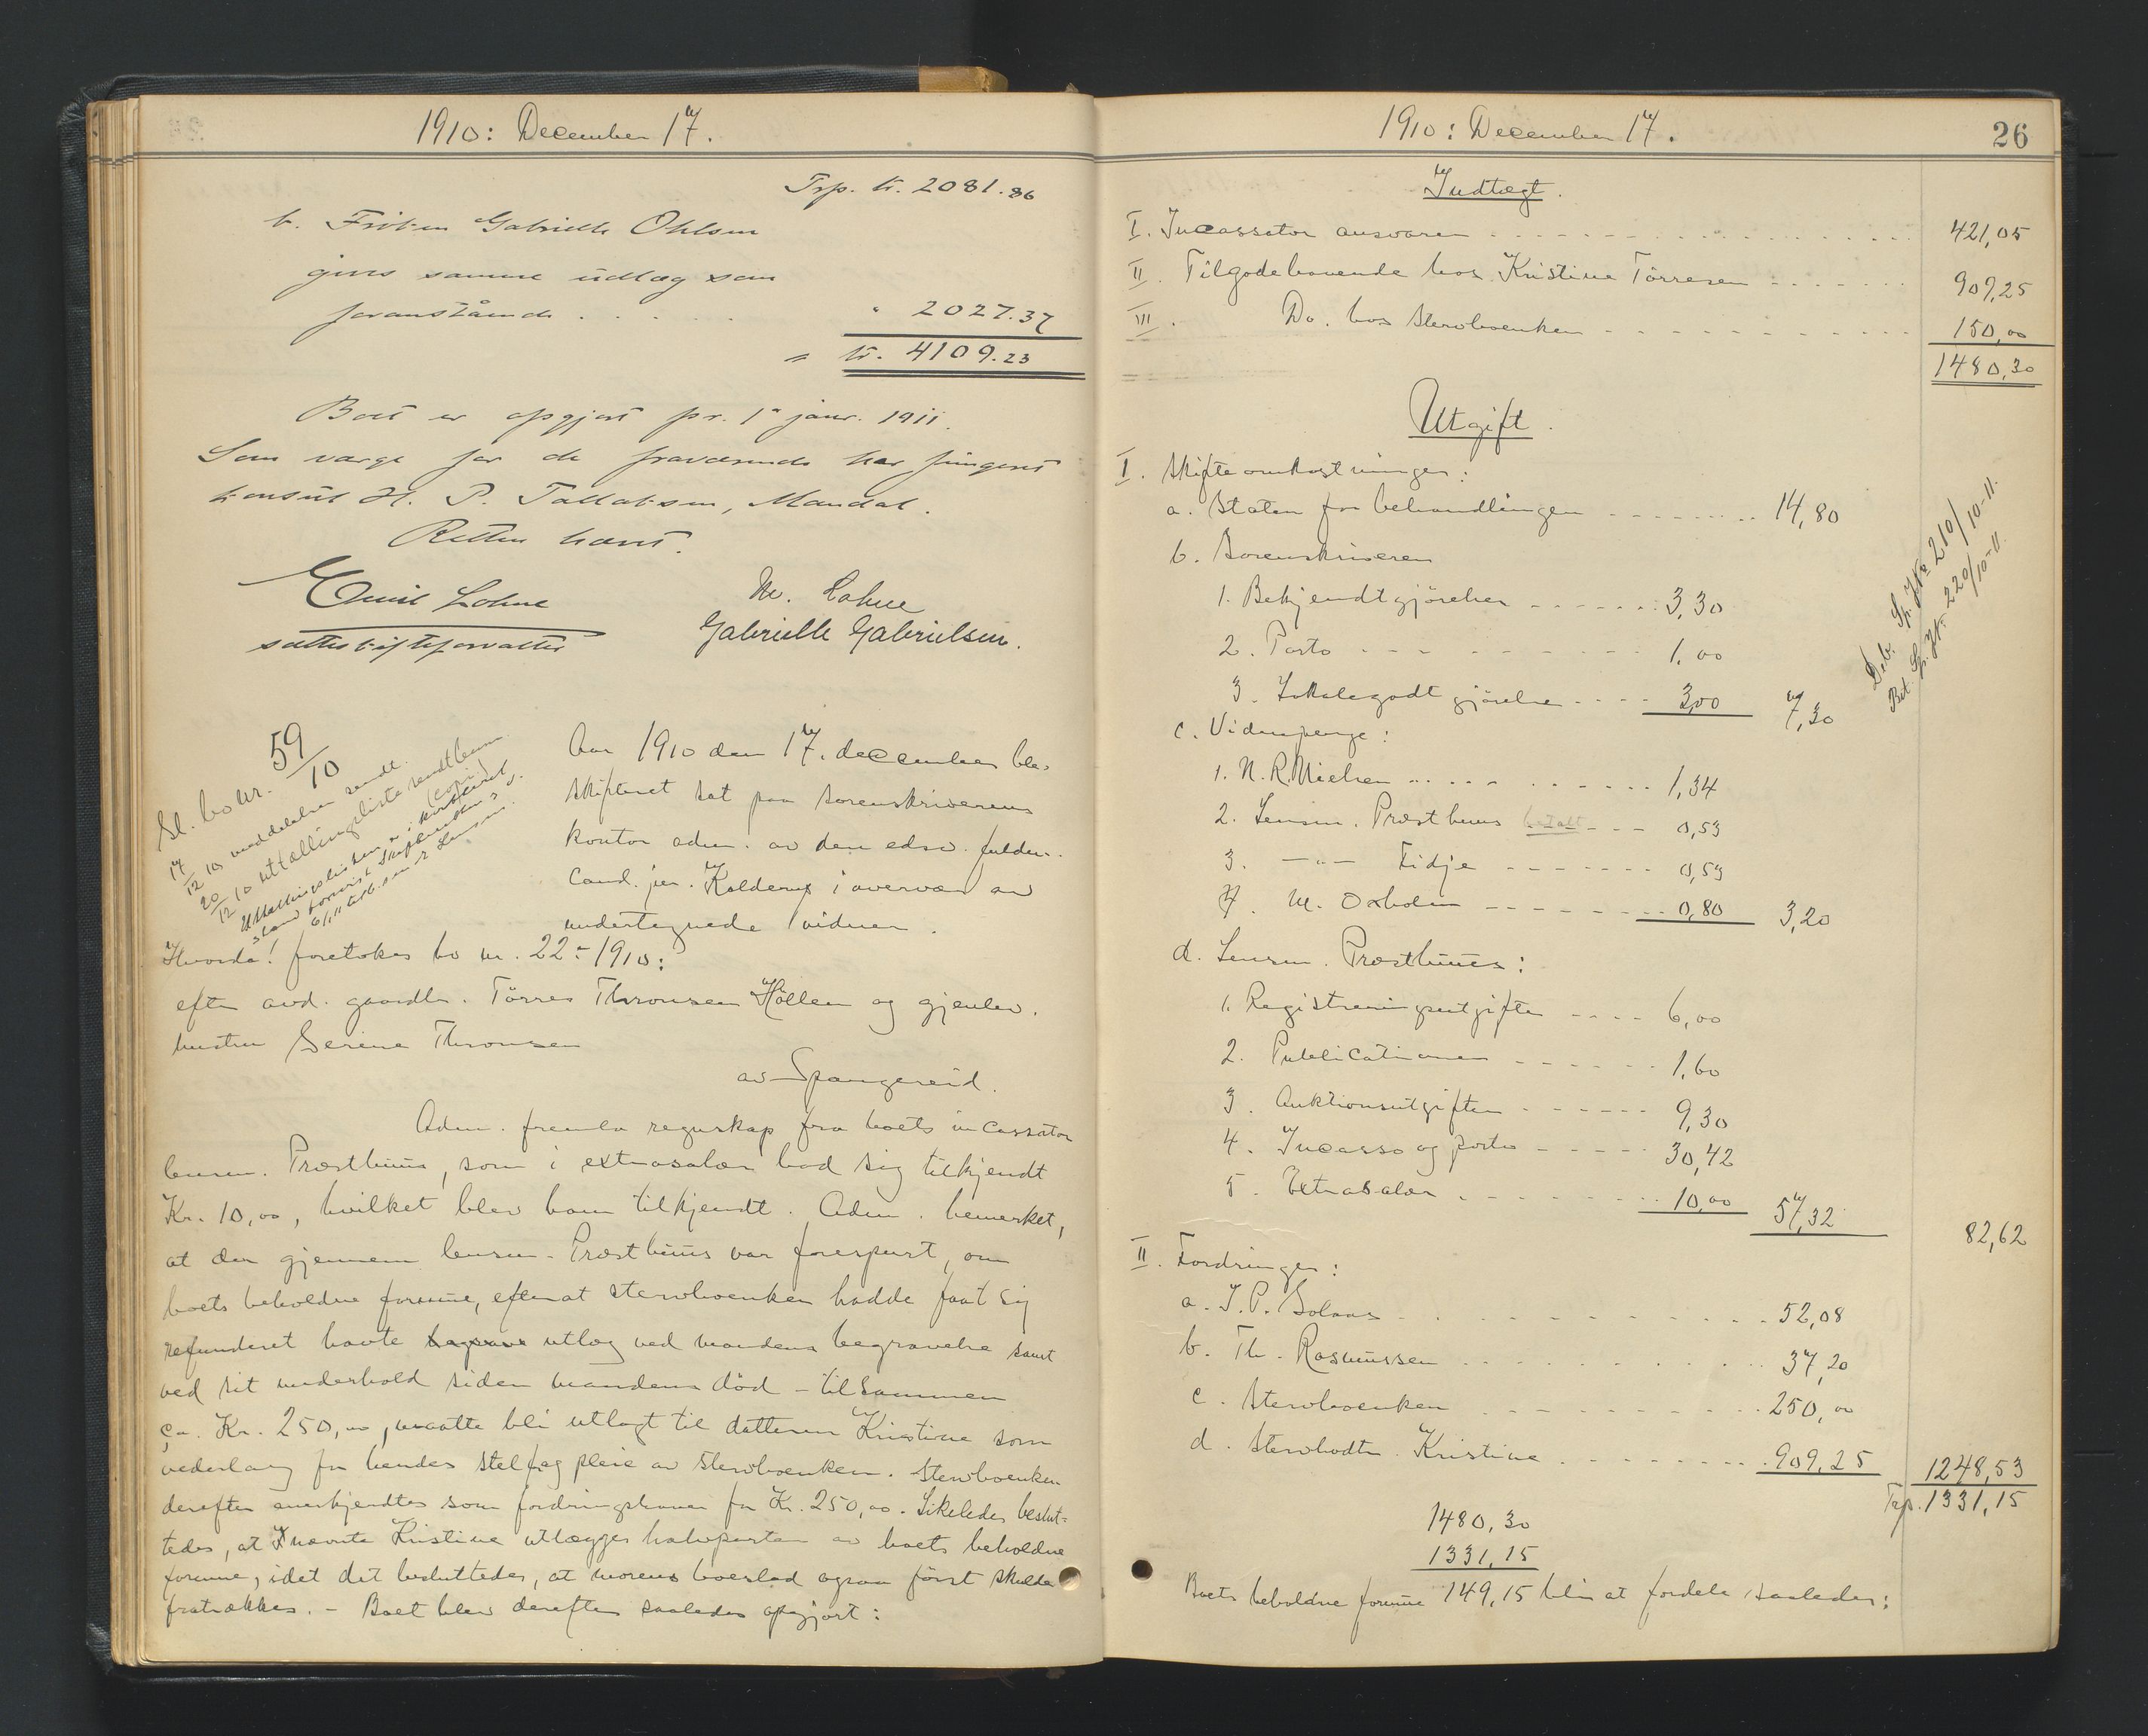 1910: December 17.
Trp. kr. 2081.86
b. Frøken Gabrielle Ohlsen
gives samme utlæg som
foranstående . . . . . " 2027.37
= kr. 4109.23
Boet er opgjort pr. 1ste janr. 1911.
Som værge for de fraværende har fungert
konsul H. P. Tallaksen, Mandal.
Retten hævet.
Emil Lohne
sættesskifteforvalter
M. Lohne
Gabrielle Gabrielsen.
59/10
Sl. bo nr.
17/12 10 meddelelse sendt.
20/12 10 uttællingsliste sendt lensm
(copi)
Aar 1910 den 17. december blev
skifteret sat paa sorenskriverens
kontor adm. av den edsv. fuldm.
Cand. jur. Kalderup i overvær av
undertegnede vidner.
Hvorda! foretokes bo nr. 22 - 1910:
efter avd. gaardbr. Törres Thronsen Hällen og gjenlev.
hustru Serine Thronsen
av Spangereid.
Adm. fremla regnskap fra boets incassator
lensm. Præsthuus, som i extrasalær bad sig tilkjendt
Kr. 10,00, hvilket blev ham tilkjendt. Adm. bemerket,
at der gjennem lensm. Præsthuus var forespurt, om
boets beholdne formue, efterat stervboenken hadde faat sig
refunderet havte utlæg ved mandens begravelse samt
ved sit underhold siden mandens död - tilsammen
ca. Kr. 250,00, maatte bli utlagt til datteren Kristine som
vederlag for hendes stel og pleie av stervboenken. Stervboenken
derefter anerkjendtes som fordringshaver for Kr. 250,00. Likeledes beslut-
tedes, at nævnte Kristine utlægges halvparten av boets beholdne
formue, idet det besluttedes, at morens boeslod ogsaa först skulde
fratrækkes. - Boet blev derefter saaledes opgjort:
1910: December 17.
26
Indtægt.
I. Incassator ansvarer 421,05
II. Tilgodehavende hos Kristine Törresen 909,25
III. Do. hos stervboenken 150,00
1480,30
Utgift.
I. Skifteomkostninger:
a. Staten for behandlingen 14,80
b. Sorenskriveren
1. Bekjendtgjörelser 3,30
2. Porto 1,00
3. Lokalegodtgjörelse 3,00 7,30
Deb. Sp. J. Nr. 210/10-11.
Bet. Sp. J. Nr. 220/10-11.
c. Vidnepenge:
1. N. R. Nielsen 1,34
2. Lensm. Præsthuus betalt 0,53
3. -"- Fidje 0,53
4. M. Oxholm 0,80 3,20
d. Lensm. Præsthuus:
1. Registreringsutgifter 6,00
2. Publicationer 1,60
3. Auktionsutgifter 9,30
4. Incasso og porto 30,42
5. Extrasalær 10,00 57,32
82,62
II. Fordringer:
a. J. P. Solaas 52,08
b. Th. Rasmussen 37,20
c. Stervboenken 250,00
d. Stervbodtr. Kristine 909,25 1248,53
Trp. 1331,15
1480,30
1331,15
Boets beholdne formue 149,15 blir at fordele saaledes: